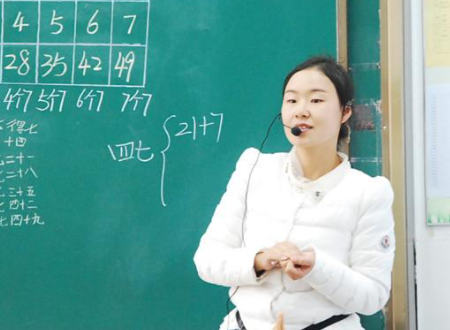 4 5 6 7
28 35 42 49
4个7 5个7 6个7 7个7
得七
十四
二十一
二十八
三十五
七四十二
七四十九
四七 { 21+7